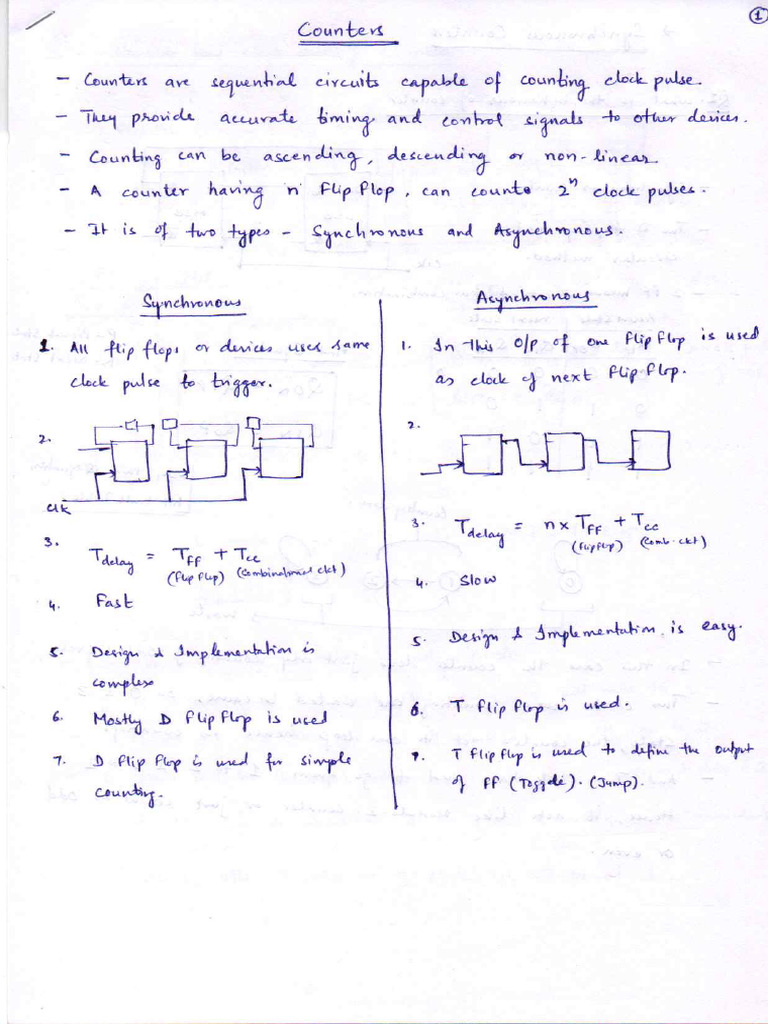 1
Counters
- Counters are sequential circuits capable of counting clock pulse.
- They provide accurate timing and control signals to other devices.
- Counting can be ascending, descending or non-linear.
- A counter having 'n' Flip Flop, can counte 2ⁿ clock pulses.
- It is of two types - Synchronous and Asynchronous.
Synchronous
1. All flip flops or devices uses same
clock pulse to trigger.
2.
Clk
3. Tdelay = TFF + Tcc
(Flip Flop) (Combinational ckt)
4. Fast
5. Design & Implementation is
complex
6. Mostly D flip flop is used
7. D flip flop is used for simple
counting.
Asynchronous
1. In this O/p of one flip flop is used
as clock of next flip flop.
2.
3. Tdelay = n x TFF + Tcc
(flipflop) (Comb. ckt)
4. Slow
5. Design & Implementation is easy.
6. T flip flop is used.
7. T flip flop is used to define the output
of FF (Toggole). (Jump).